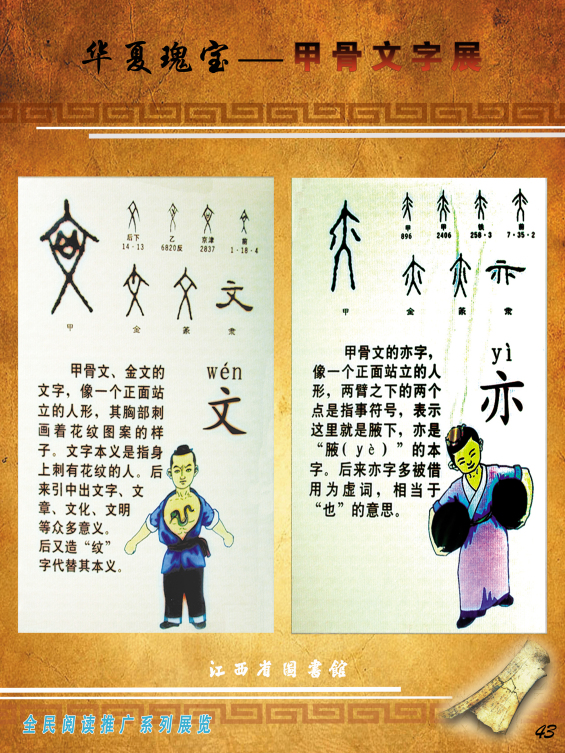 华夏瑰宝——甲骨文字展
后下
14·13
乙
6820反
京津
2837
前
1·18·4
甲
金
篆
文
隶
wén
文
甲骨文、金文的
文字，像一个正面站
立的人形，其胸部刺
画着花纹图案的样
子。文字本义是指身
上刺有花纹的人。后
来引申出文字、文
章、文化、文明
等众多意义。
后又造“纹”
字代替其本义。
甲
896
甲
2406
铁
258·3
前
7·35·2
甲
金
篆
亦
隶
yì
亦
甲骨文的亦字，
像一个正面站立的人
形，两臂之下的两个
点是指事符号，表示
这里就是腋下，亦是
“腋(yè)”的本
字。后来亦字多被借
用为虚词，相当于
“也”的意思。
江西省图書館
全民阅读推广系列展览
43